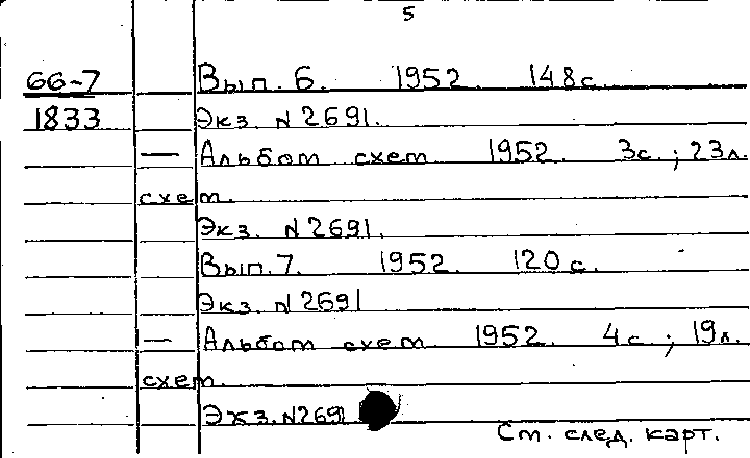 5
66-7 Вып. 6. 1952. 148с.
1833 Экз. N2691.
— Альбом схем 1952. 3с.; 23л.
схем.
Экз. N2691.
Вып. 7. 1952. 120с.
Экз. N2691
— Альбом схем 1952. 4с.; 19л.
схем.
Экз. N2691
См. след. карт.